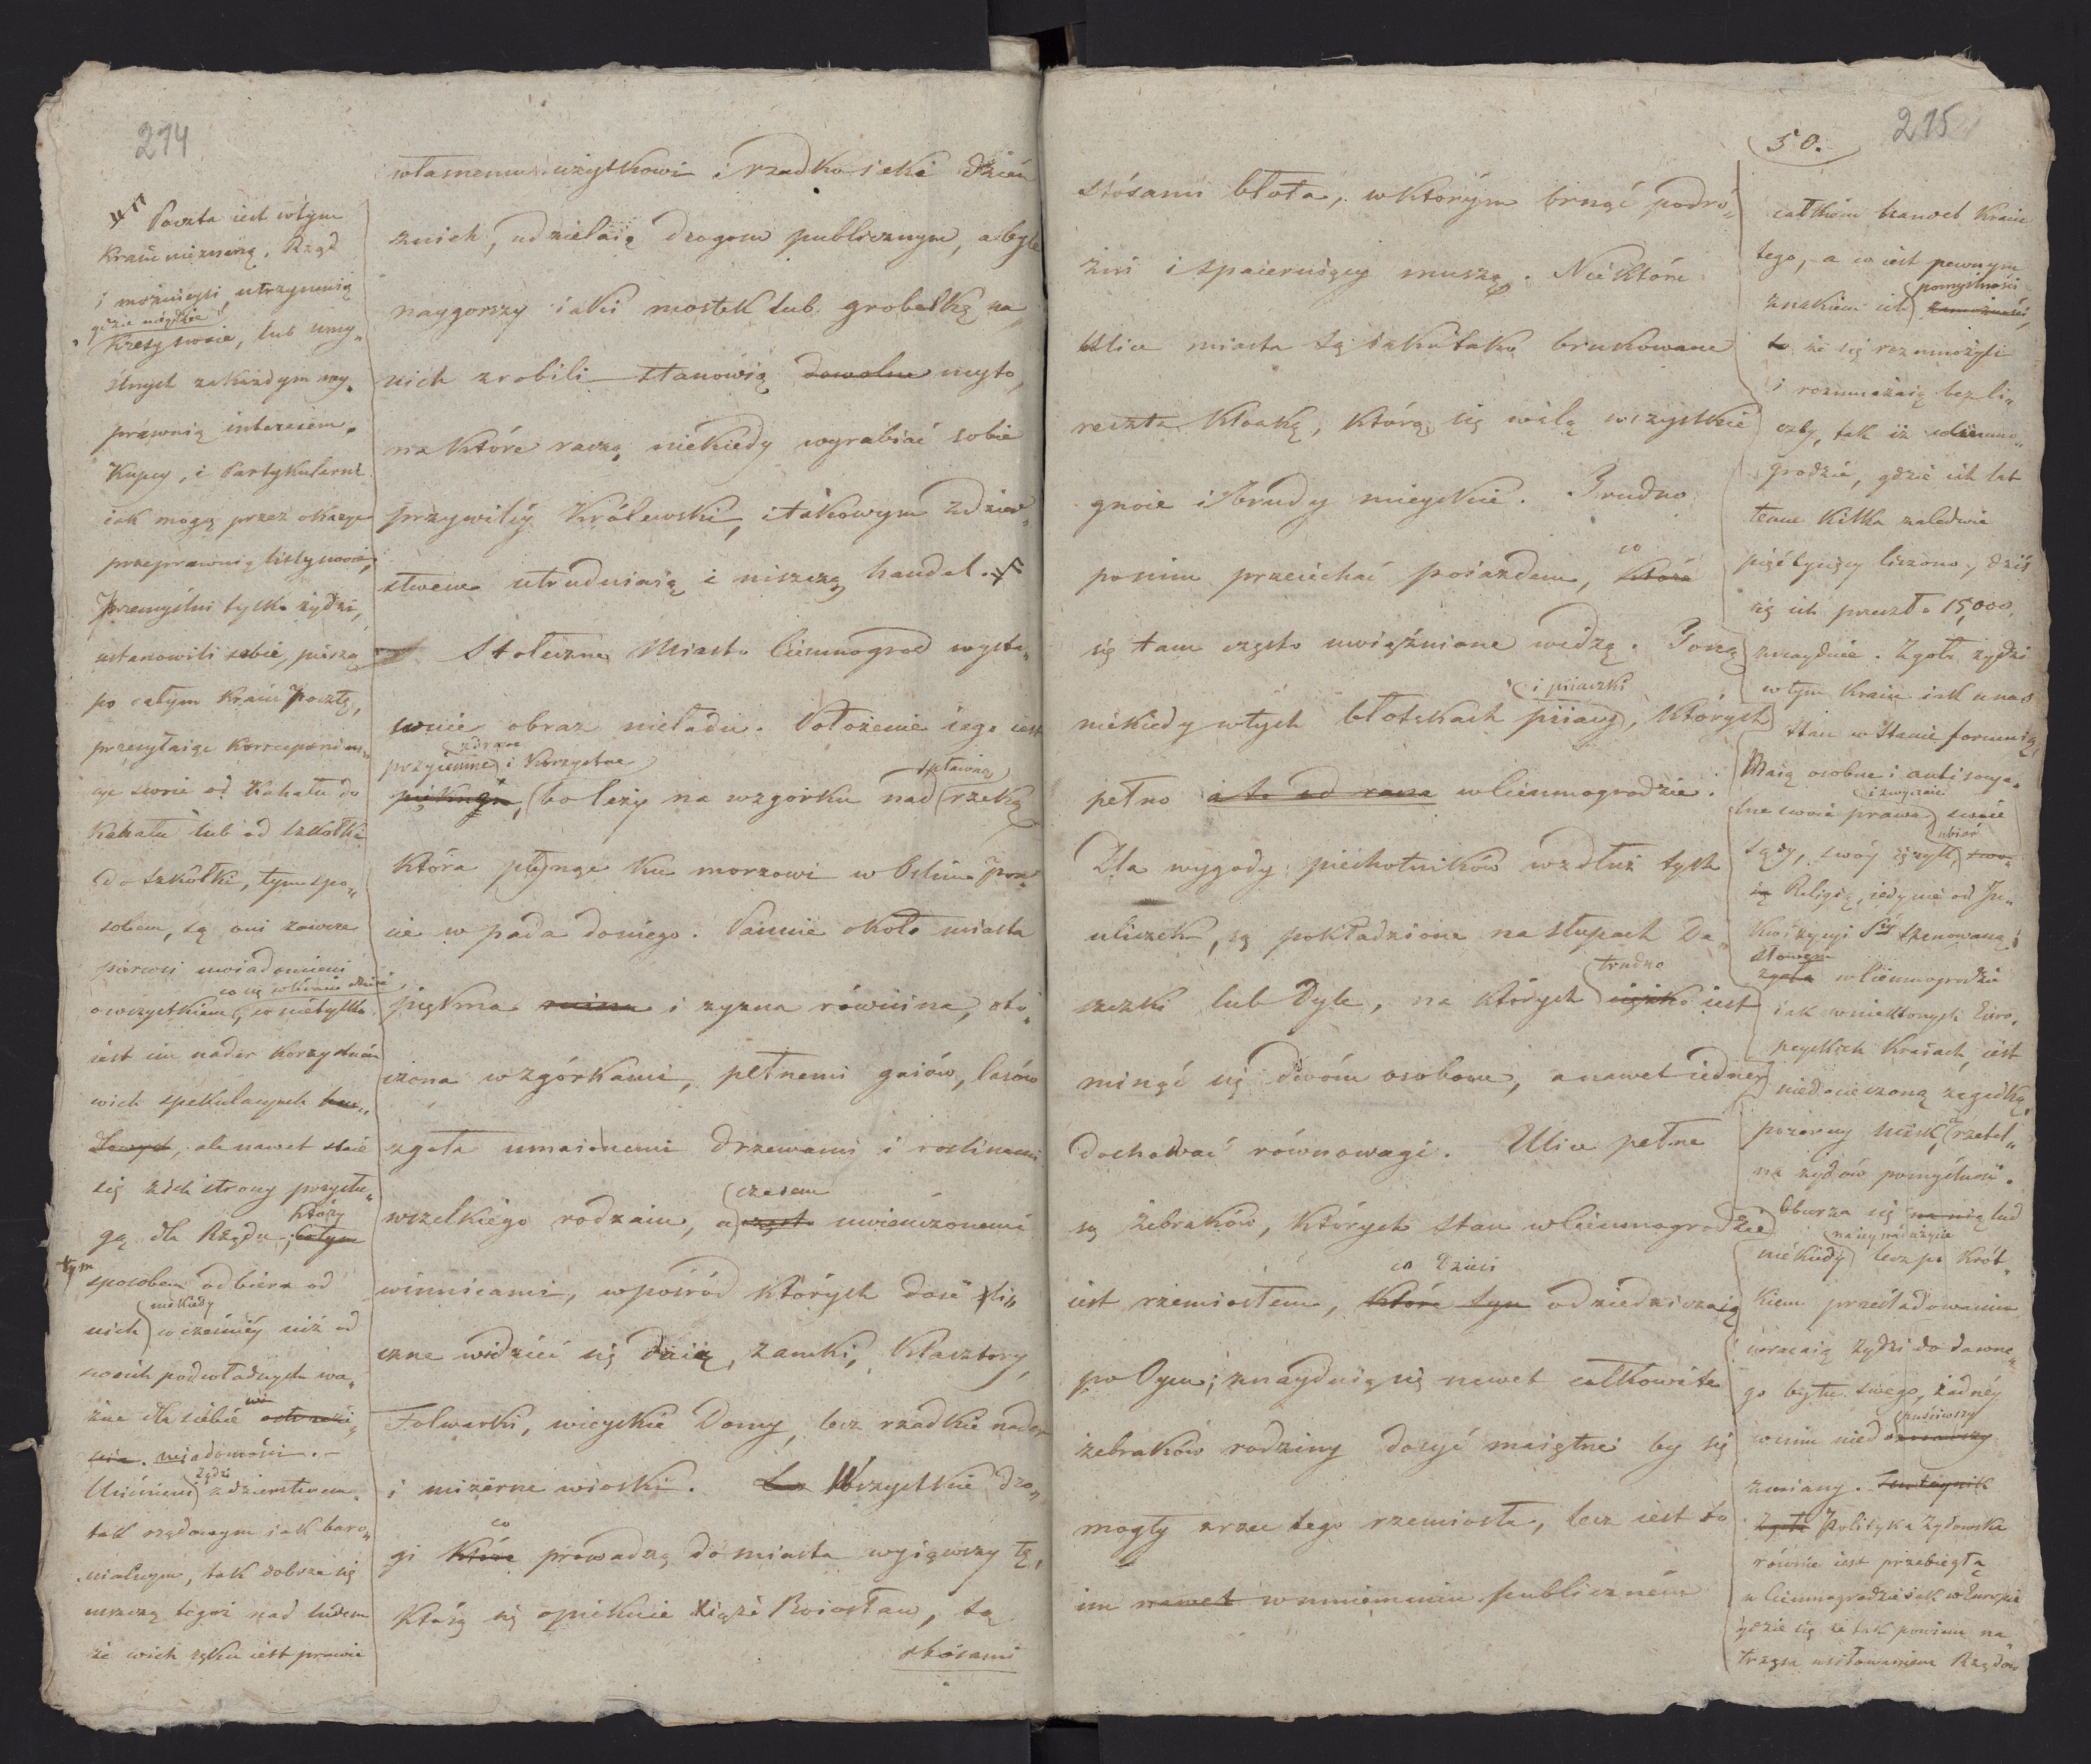 214
Poczta iest w tym
Kraiu nieznaną, Rząd
i możnieysi utrzymuią
gdzie niegdzie
Kresy swoie, lub umy„
ślnych za każdym wy„
prawuią interesem.
Kupcy, i Partykularni
iak mogą przez okazye
przeprawuią listy swoie,
Przemyślni tylko żydzi,
ustanowili sobie, pieszą
po całym Kraiu Pocztę,
przesyłaiąc korrespondens„
cye swoie od Kahału do
Kahału lub od szkółki
do szkółki, tym spo„
sobem, są oni zawsze
pierwsi uwiadomieni
co się w Kraiu dzieie
o wszystkiem, co nietylko
iest im nader korzystném
w ich spekulacyach han„
dlowych, ale nawet staie
się z ich strony przysłu„
który
gą dla Rządu, i tym
tym
sposobem odbiera od
niekiedy
nich wcześniéy niż od
swoich podwładnych wa„
żne dla siebie
wiadomości. –
żydzi
Uciśnieni zdzierstwem
tak rządowym iak baro„
nialnym, tak dobrze się
mszczą tegoż nad ludem
że w ich ręku iest prawie
własnemu użytkowi i rzadko iaki dzień
z nich, udzielaią drogom publicznym, a byle
naygorszy iaki mostek lub grobelkę na
nich zrobili stanowią dowolne myto,
na które raczą niekiedy wyrabiać sobie
przywiléy Królewski, i takowym zdzier„
stwem utrudniaią i niszczą handel.
Stołeczne Miasto Ciemnogrod wysta„
wuie obraz nieładu. Położenie iego iest
zdrowe
przyiemne i korzystne spławną
piękne, bo leży na wzgórku nad rzeką
która płynąc ku morzowi w
cie wpada do niego. Panuie około miasta
piękna i żyzna równina, oto„
czona wzgórkami, pełnemi gaiów, lasów
zgoła umaionemi drzewami i roślinami
czasem
wszelkiego rodzaiu, a często uwieńczonemi
winnicami, wpośród których dość śli„
czne widzieć się daią, zamki, Klasztory,
Folwarki, wieyskie Domy, lecz rzadkie nader
i mizerne wioski. Wszystkie dro„
co
gi które prowadzą do miasta wyiąwszy tę,
którą się opiekuie xiąże Boiosław, są
stósami
50. 215
stósami błota, w którym brnąć podró„
żni i spaceruiący muszą. Niektóre
Ulice miasta są iako tako brukowane
reszta kloaką, którą się walą wszystkie
gnoie i brudy mieyskie. Trudno
co
po nim przeiechać poiazdem, które
się tam często uwięźnione widzą. Toną
i piiaczki
niekiedy w tych błotskach piiacy, których
pełno a to od rana w Ciemnogrodzie.
Dla wygody piechotników wzdłuż tych
uliczek, są pokładzione na słupach De„
trudno
szczki lub Dyle, na których ciężko iest
minąć się dwóm osobom, a nawet iedney
dochować równowagi. Ulice pełne
są żebraków, których stan w Ciemnogrodzie
co dzieci
iest rzemiosłem, które syn odziedziczaią
po Oycu; znayduią się nawet całkowite
żebraków rodziny dosyć maiętne by się
mogły zrzec tego rzemiosła, lecz iest to
im nawet w mniemaniu publiczném
całkiem handel Kraiu
tego, a co iest pewnym
pomyślności
znakiem ich zamożności,
to że się rozmnożyli
i rozmnażaią bez li„
czby, tak iż w Ciemno„
grodzie, gdzie ich lat
temu kilka zaledwie
pięć tysięcy liczono, dziś
się ich przeszło 15,000.
znayduie. Zgoła żydzi
w tym Kraiu iak u nas
stan w Stanie formuią,
Maią osobne i antisocya„
i zwyczaie
lne swoie prawa swoie
ubiór
sądy, swóy ięzyk swo„
ią Religią, iedynie od In„
kwizycyi Stéy szanowaną;
słowem
zgoła w Ciemnogrodzie
iak w niektorych Euro„
peyskich Kraiach, iest
niedocieczoną zagadką,
pozorny ucisk, a rzetel„
na żydów pomyślność.
Oburza się na nią lud
na iey nadużycie
niekiedy lecz po krót„
kiem prześladowaniu
wracaią żydzi do dawne„
go bytu swego, żadnéy
w nim niedopuściwszy
zmiany.
Zgoła Polityka żydowska
równie iest przebiegłą
w Ciemnogrodzie iak w Europie
gdzie się że tak powiem na„
trząsa usiłowaniom Rządów